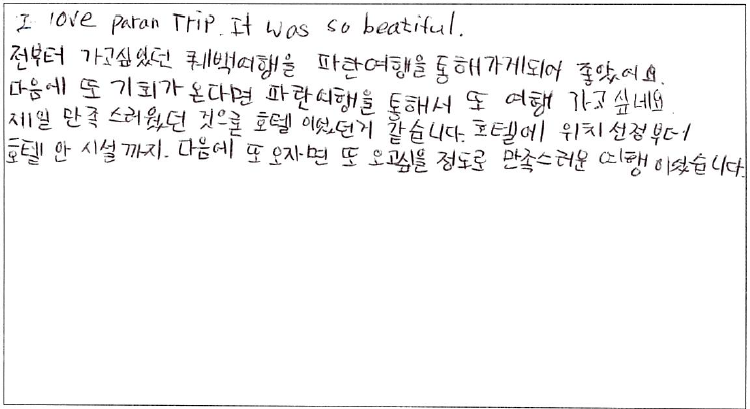 I love paran Trip. It was so beatiful.
전부터 가고싶었던 퀘백여행을 파란여행을 통해가게되어 좋았어요.
다음에 또 기회가 온다면 파란여행을 통해서 또 여행 가고 싶네요.
제일 만족 스러웠던 것으론 호텔 이었던거 같습니다. 호텔에 위치 선정부터
호텔 안 시설 까지. 다음에 또 오자면 또 오고싶을 정도로 만족스러운 여행 이었습니다.